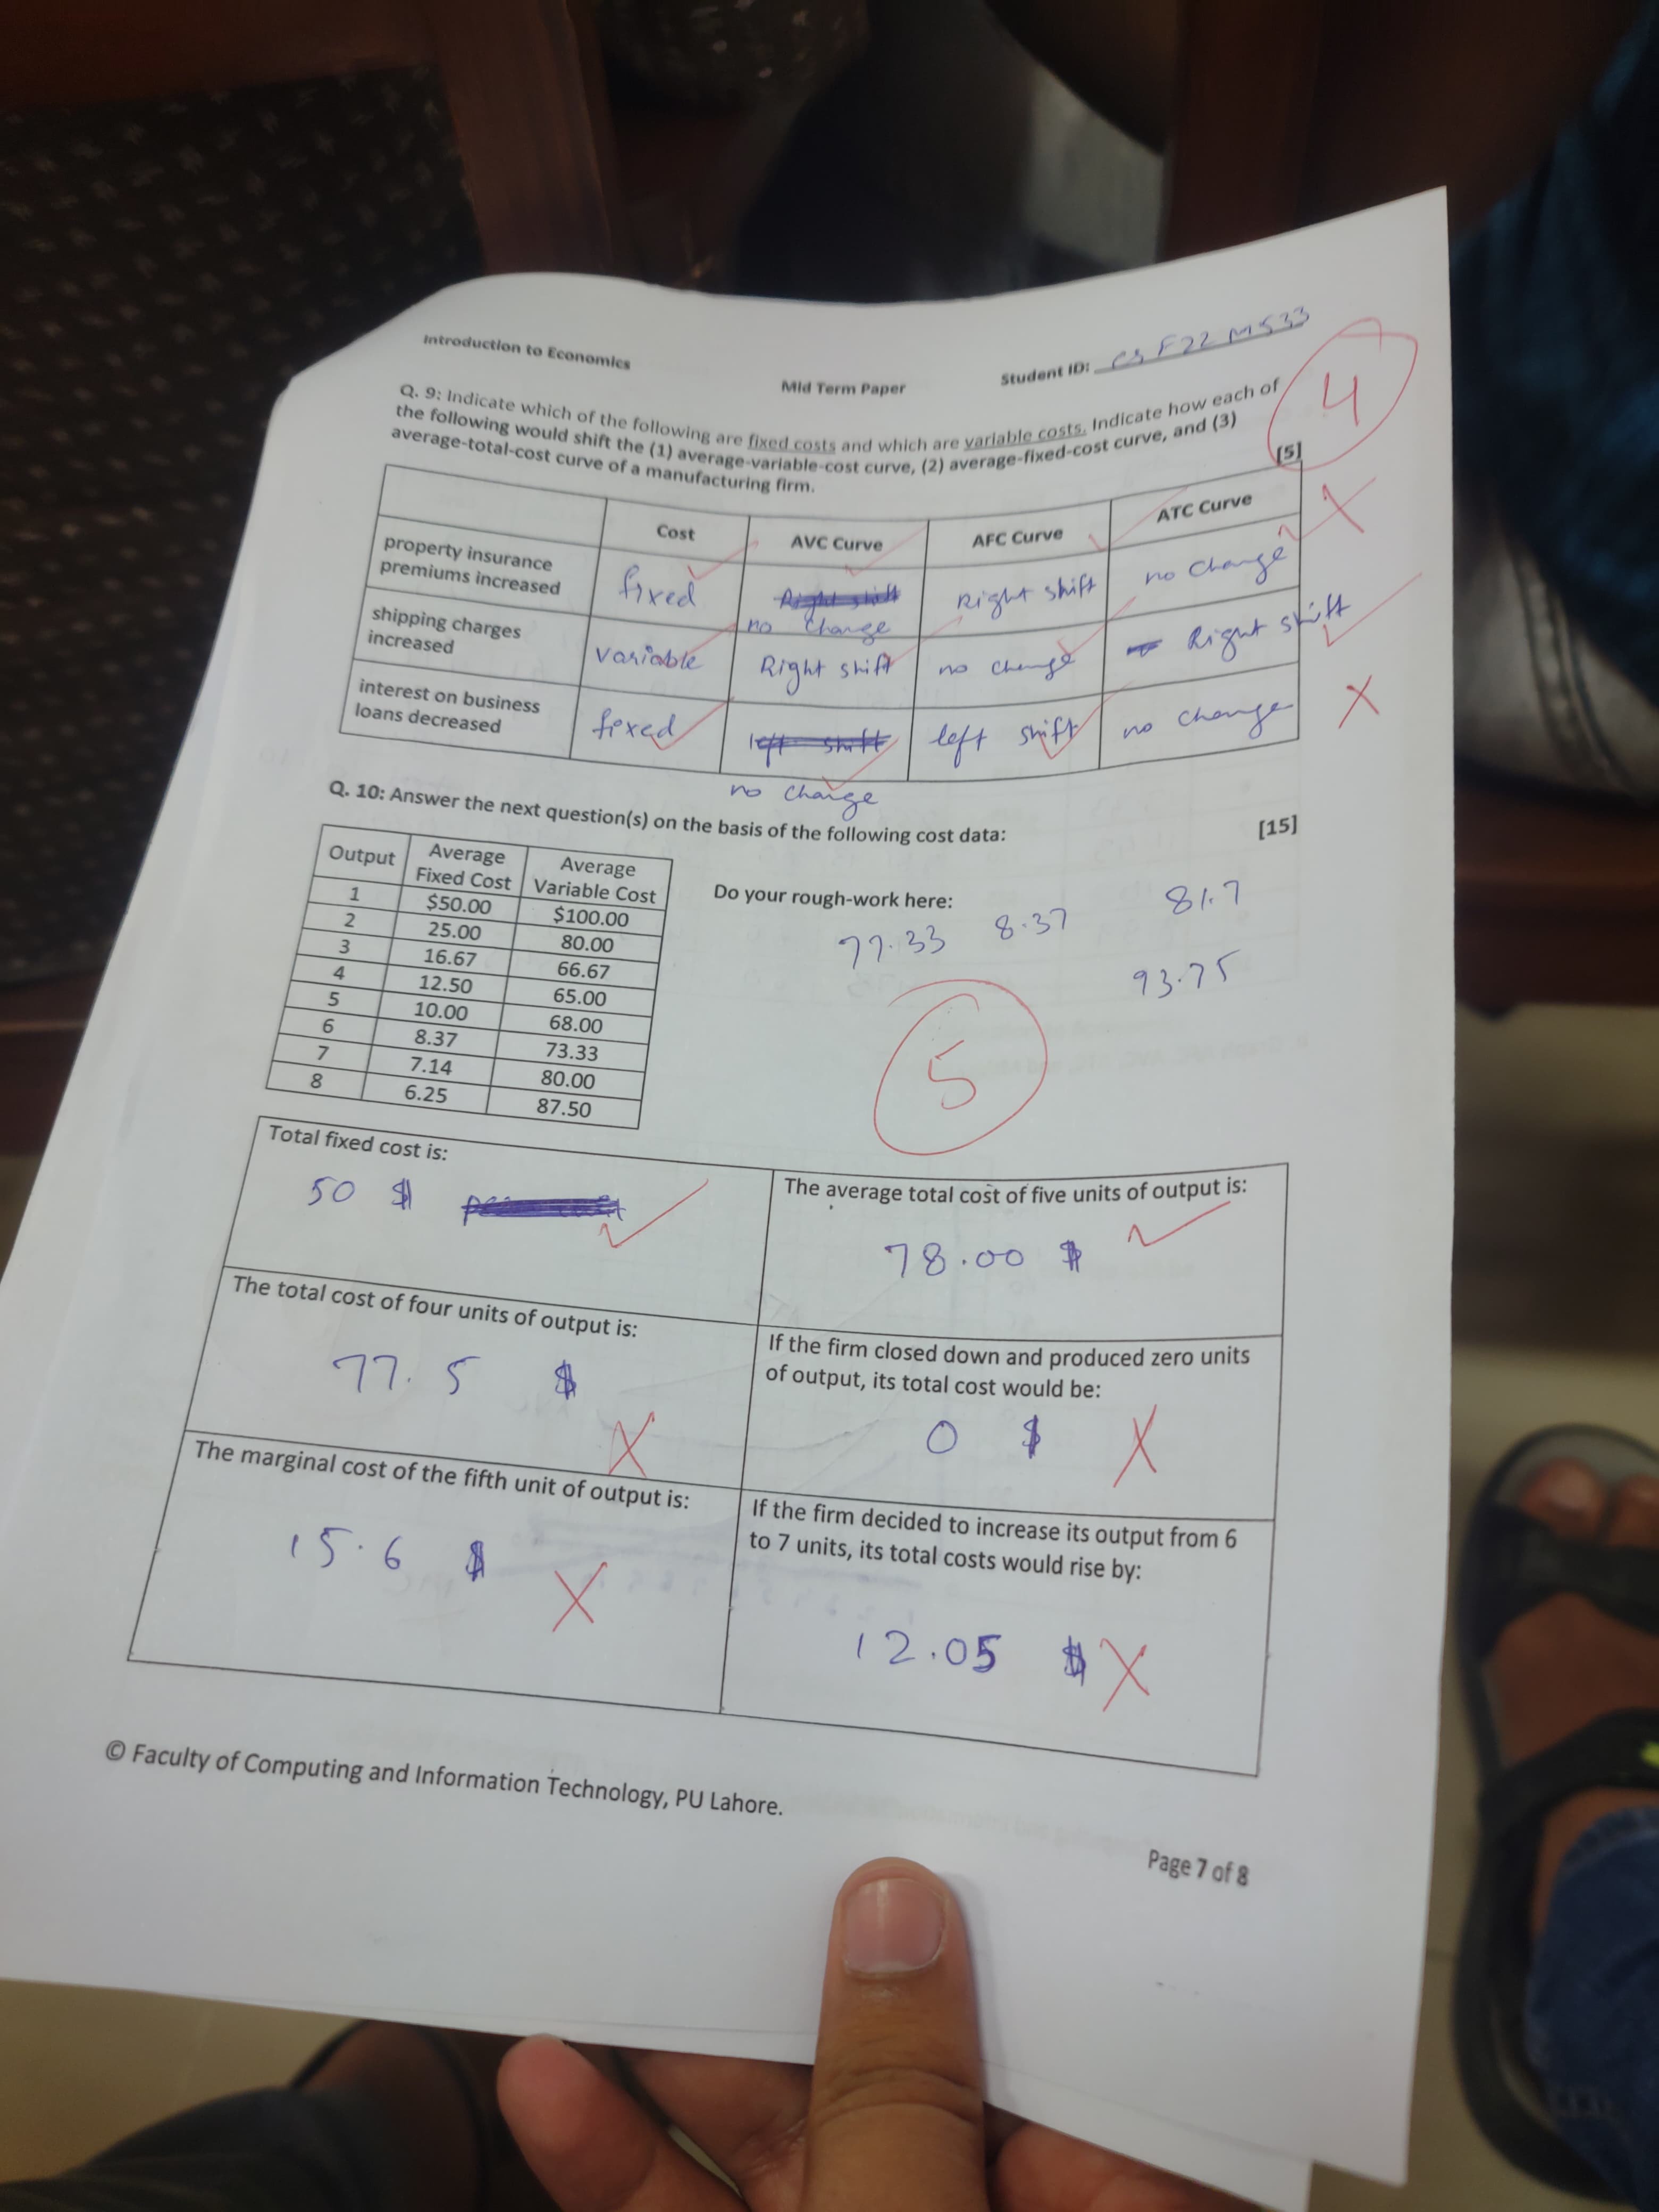 Introduction to Economics
Mid Term Paper
Student ID: CS F22 M533
4
Q. 9: Indicate which of the following are fixed costs and which are variable costs. Indicate how each of
the following would shift the (1) average-variable-cost curve, (2) average-fixed-cost curve, and (3)
average-total-cost curve of a manufacturing firm.
[5]
Cost AVC Curve AFC Curve ATC Curve
property insurance
premiums increased
fixed no change Right shift no change
shipping charges
increased
variable Right shift no change Right shift
interest on business
loans decreased
fixed left shift no change
no change
Q. 10: Answer the next question(s) on the basis of the following cost data:
[15]
Output Average Fixed Cost Average Variable Cost
1 $50.00 $100.00
2 25.00 80.00
3 16.67 66.67
4 12.50 65.00
5 10.00 68.00
6 8.37 73.33
7 7.14 80.00
8 6.25 87.50
Do your rough-work here:
77.33 8.37 81.7
93.75
5
Total fixed cost is:
50 $
The average total cost of five units of output is:
78.00 $
The total cost of four units of output is:
77.5 $
If the firm closed down and produced zero units
of output, its total cost would be:
0 $
The marginal cost of the fifth unit of output is:
15.6 $
If the firm decided to increase its output from 6
to 7 units, its total costs would rise by:
12.05 $
© Faculty of Computing and Information Technology, PU Lahore.
Page 7 of 8